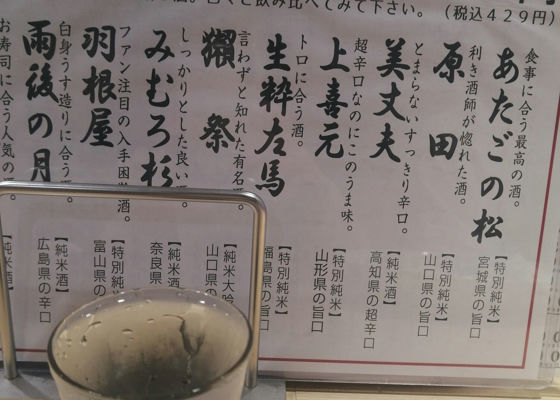 飲み比べてみて下さい。
(税込429円)
食事に合う最高の酒。
あたごの松
【特別純米】
宮城県の旨口
利き酒師が惚れた酒。
原田
【特別純米】
山口県の旨口
とまらないすっきり辛口。
美丈夫
【純米酒】
高知県の超辛口
超辛口なのにこのうま味。
上喜元
【特別純米】
山形県の旨口
トロに合う酒。
生粋左馬
【特別純米】
福島県の旨口
言わずと知れた有名
獺祭
【純米大吟
山口県の
しっかりとした良い酒。
みむろ杉
【純米酒
奈良県
ファン注目の入手困難酒。
羽根屋
【特別純
富山県の
白身うす造りに合う酒。
雨後の月
【純米酒】
広島県の辛口
お寿司に合う人気の
【純米酒】